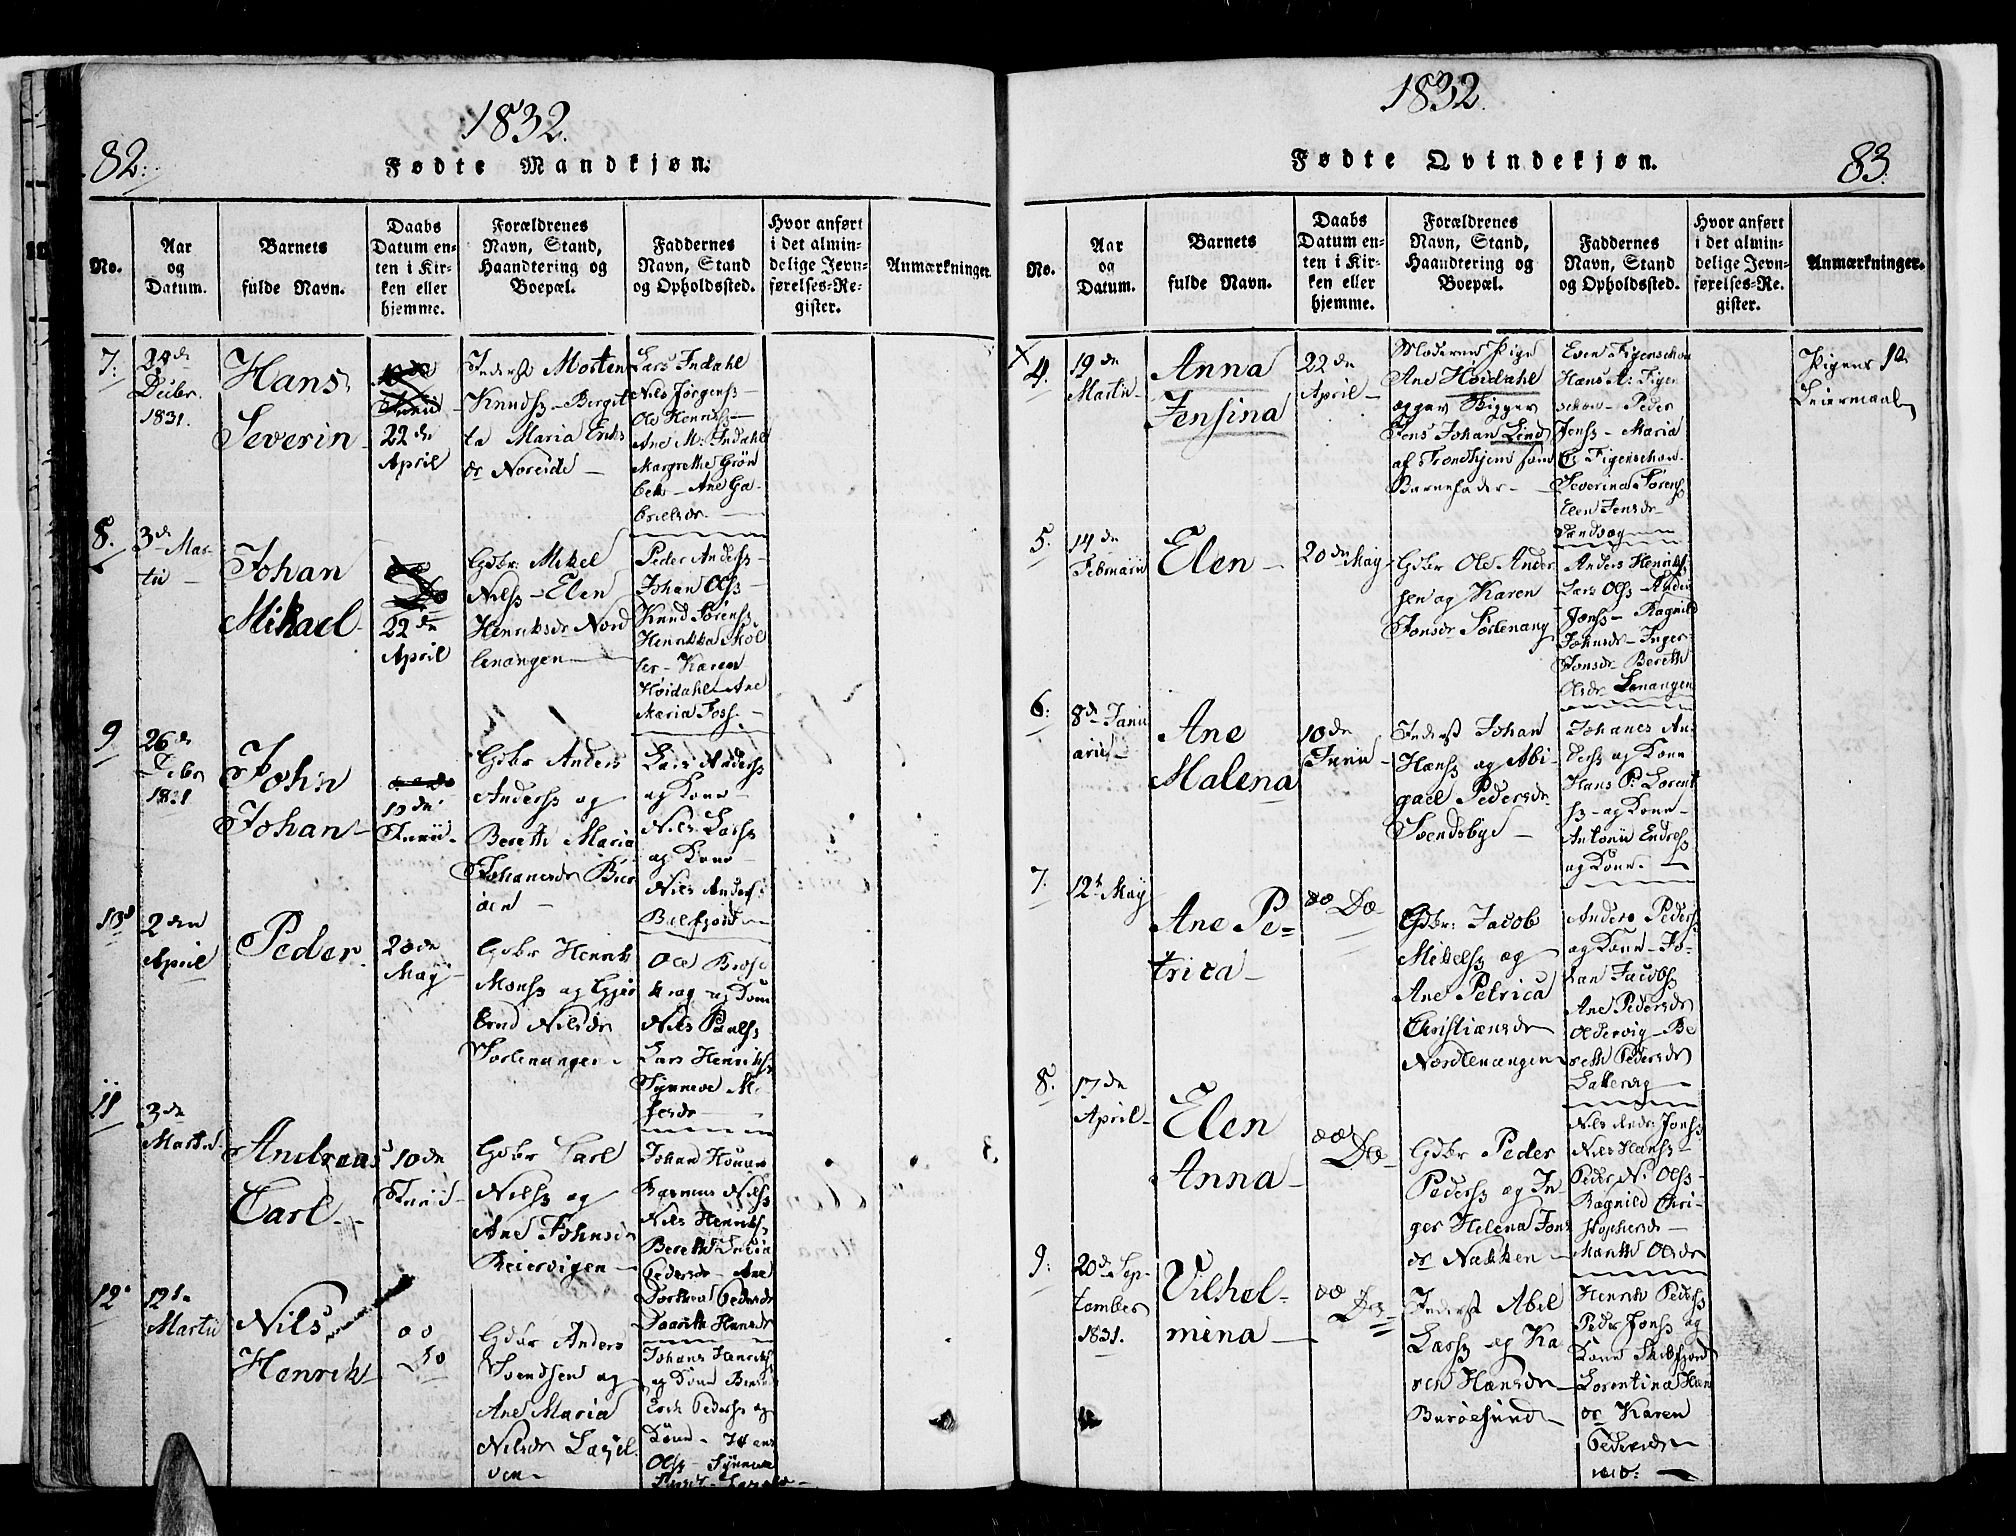 1832.
82.
Fødte Mandkjøn.
No.
Aar
og
Datum.
Barnets
fulde Navn.
Daabs
Datum en-
ten i Kir-
ken eller
hjemme.
Forældrenes
Navn, Stand,
Haandtering og
Boepæl.
Faddernes
Navn, Stand
og Opholdssted.
Hvor anført
i det almin-
delige Jevn-
førelses-Re-
gister.
Anmærkninger.
7.
Decbr
1831.
Hans
Severin
22 dn
April
Inderst Morten
Knuds - Bergit
ta Maria Eriks
dr Noreide
Lars Indahl
Nils Jørgens
Ole Henriks
Ane M. Indahl
Margrethe Grøn
bek - Ane Ga-
brielsdr
8.
3 dn Mar-
tii
Johan
Mikael
22 dn
April
Gdbr. Mikel
Nils - Elen
Henriksdr Nord
lenangen
Peder Anders
Johan Ols
Knud Sørens
Henrikka Møl
ler - Karen
Høidahl - Ane
Maria Foss
9
26 dn
Debr
1831
John
Johan
10 dn
Junii
Gdbr Anders
Anders og
Bereth Maria
Johanesdr Bur
øen
Lars Anders
og Kone
Nils Lars
og Kone
Nils Anders
10
2 den
April
Peder
20 dn
Maij
Gdbr Henrik
Mons og Gjer
trud Nilsdr
Sørlenangen
Ole
og Kone
Nils Pauls
Lars Henriks
Synneve
11
3 dn
Martii
Andreas
Carl
10 dn
Junii
Gdbr Carl
Nils og
Ane Johnsd
Reiervigen
Johan
Rasmus Nils
Nils Henriks
Bereth
Pedersdr - Ane
Dorthea Pedersdr
12
12 dn
Martii
Nils
Henrik
Do
Gdbr Anders
Svendsen og
Ane Maria
Nilsdr
Johans Henriks
og Kone
Erik Peders og
Kone
Ols - Synneve
1832.
Fødte Qvindekjøn.
83.
No.
Aar
og
Datum.
Barnets
fulde Navn.
Daabs
Datum en-
ten i Kir-
ken eller
hjemme.
Forældrenes
Navn, Stand,
Haandtering og
Boepæl.
Faddernes
Navn, Stand
og Opholdssted.
Hvor anført
i det almin-
delige Jevn-
førelses-Re-
gister.
Anmærkninger.
4.
19 dn
Martii
Anna
Jensina
22 dn
April
Moderen Pige
Ane Høidahl
opgav Bigger
Jens Johan Lind
af Trondhjem som
Barnefader
Even Figenschou
Hans A. Figen
schou - Peder
Jens - Maria
E. Figenschou
Severina Sørens
Elen Jensdr
Pigens 1ste
Leiermaal
5.
14 dn
Februarii
Elen
20 dn Maij
Gdbr Ole Ander
sen og Karen
Jonsdr Sørlenang
Anders Henriks
Lars Ols - Anders
Jons - Ragnild
Johnsdr - Inger
Jonsdr - Bereth
Olsdr Lenangen
6.
8 dn Janu
arii
Ane
Malena
10 dn
Junii
Inderst Johan
Hans og Abi-
gael Pedersdr
Svendsbye
Johanes An
ders og Kone
Hans P. Lorent
s - og Kone
Antonii Endres
og Kone
7.
12 Maij
Ane Pe-
trica
Do
Gdbr. Jacob
Mikels og
Ane Petrica
Christiansdr
Nordlenangen
Anders Peders
og Kone - Jo-
han Jacobs
Ane Pedersdr
Oldervig - Be
reth Pedersdr
8.
17 dn
April
Elen
Anna
Do
Gdbr Peder
Peders og In-
ger Helena Jons
dr Nakken
Nils Andr. Jons
Nils Hans
Peder N. Ols
Ragnild Chri-
stophersdr
Marith Olsdr
9.
20 dn Sep-
tember
1831.
Vilhel-
mina
Do
Inderst Abel
Lars og Ka
ren Hansdr
Burøesund
Henrik Peders
Peder Jons og
Kone Skibsfjord
Lorentina Hans
dr Karen
Pedersdr